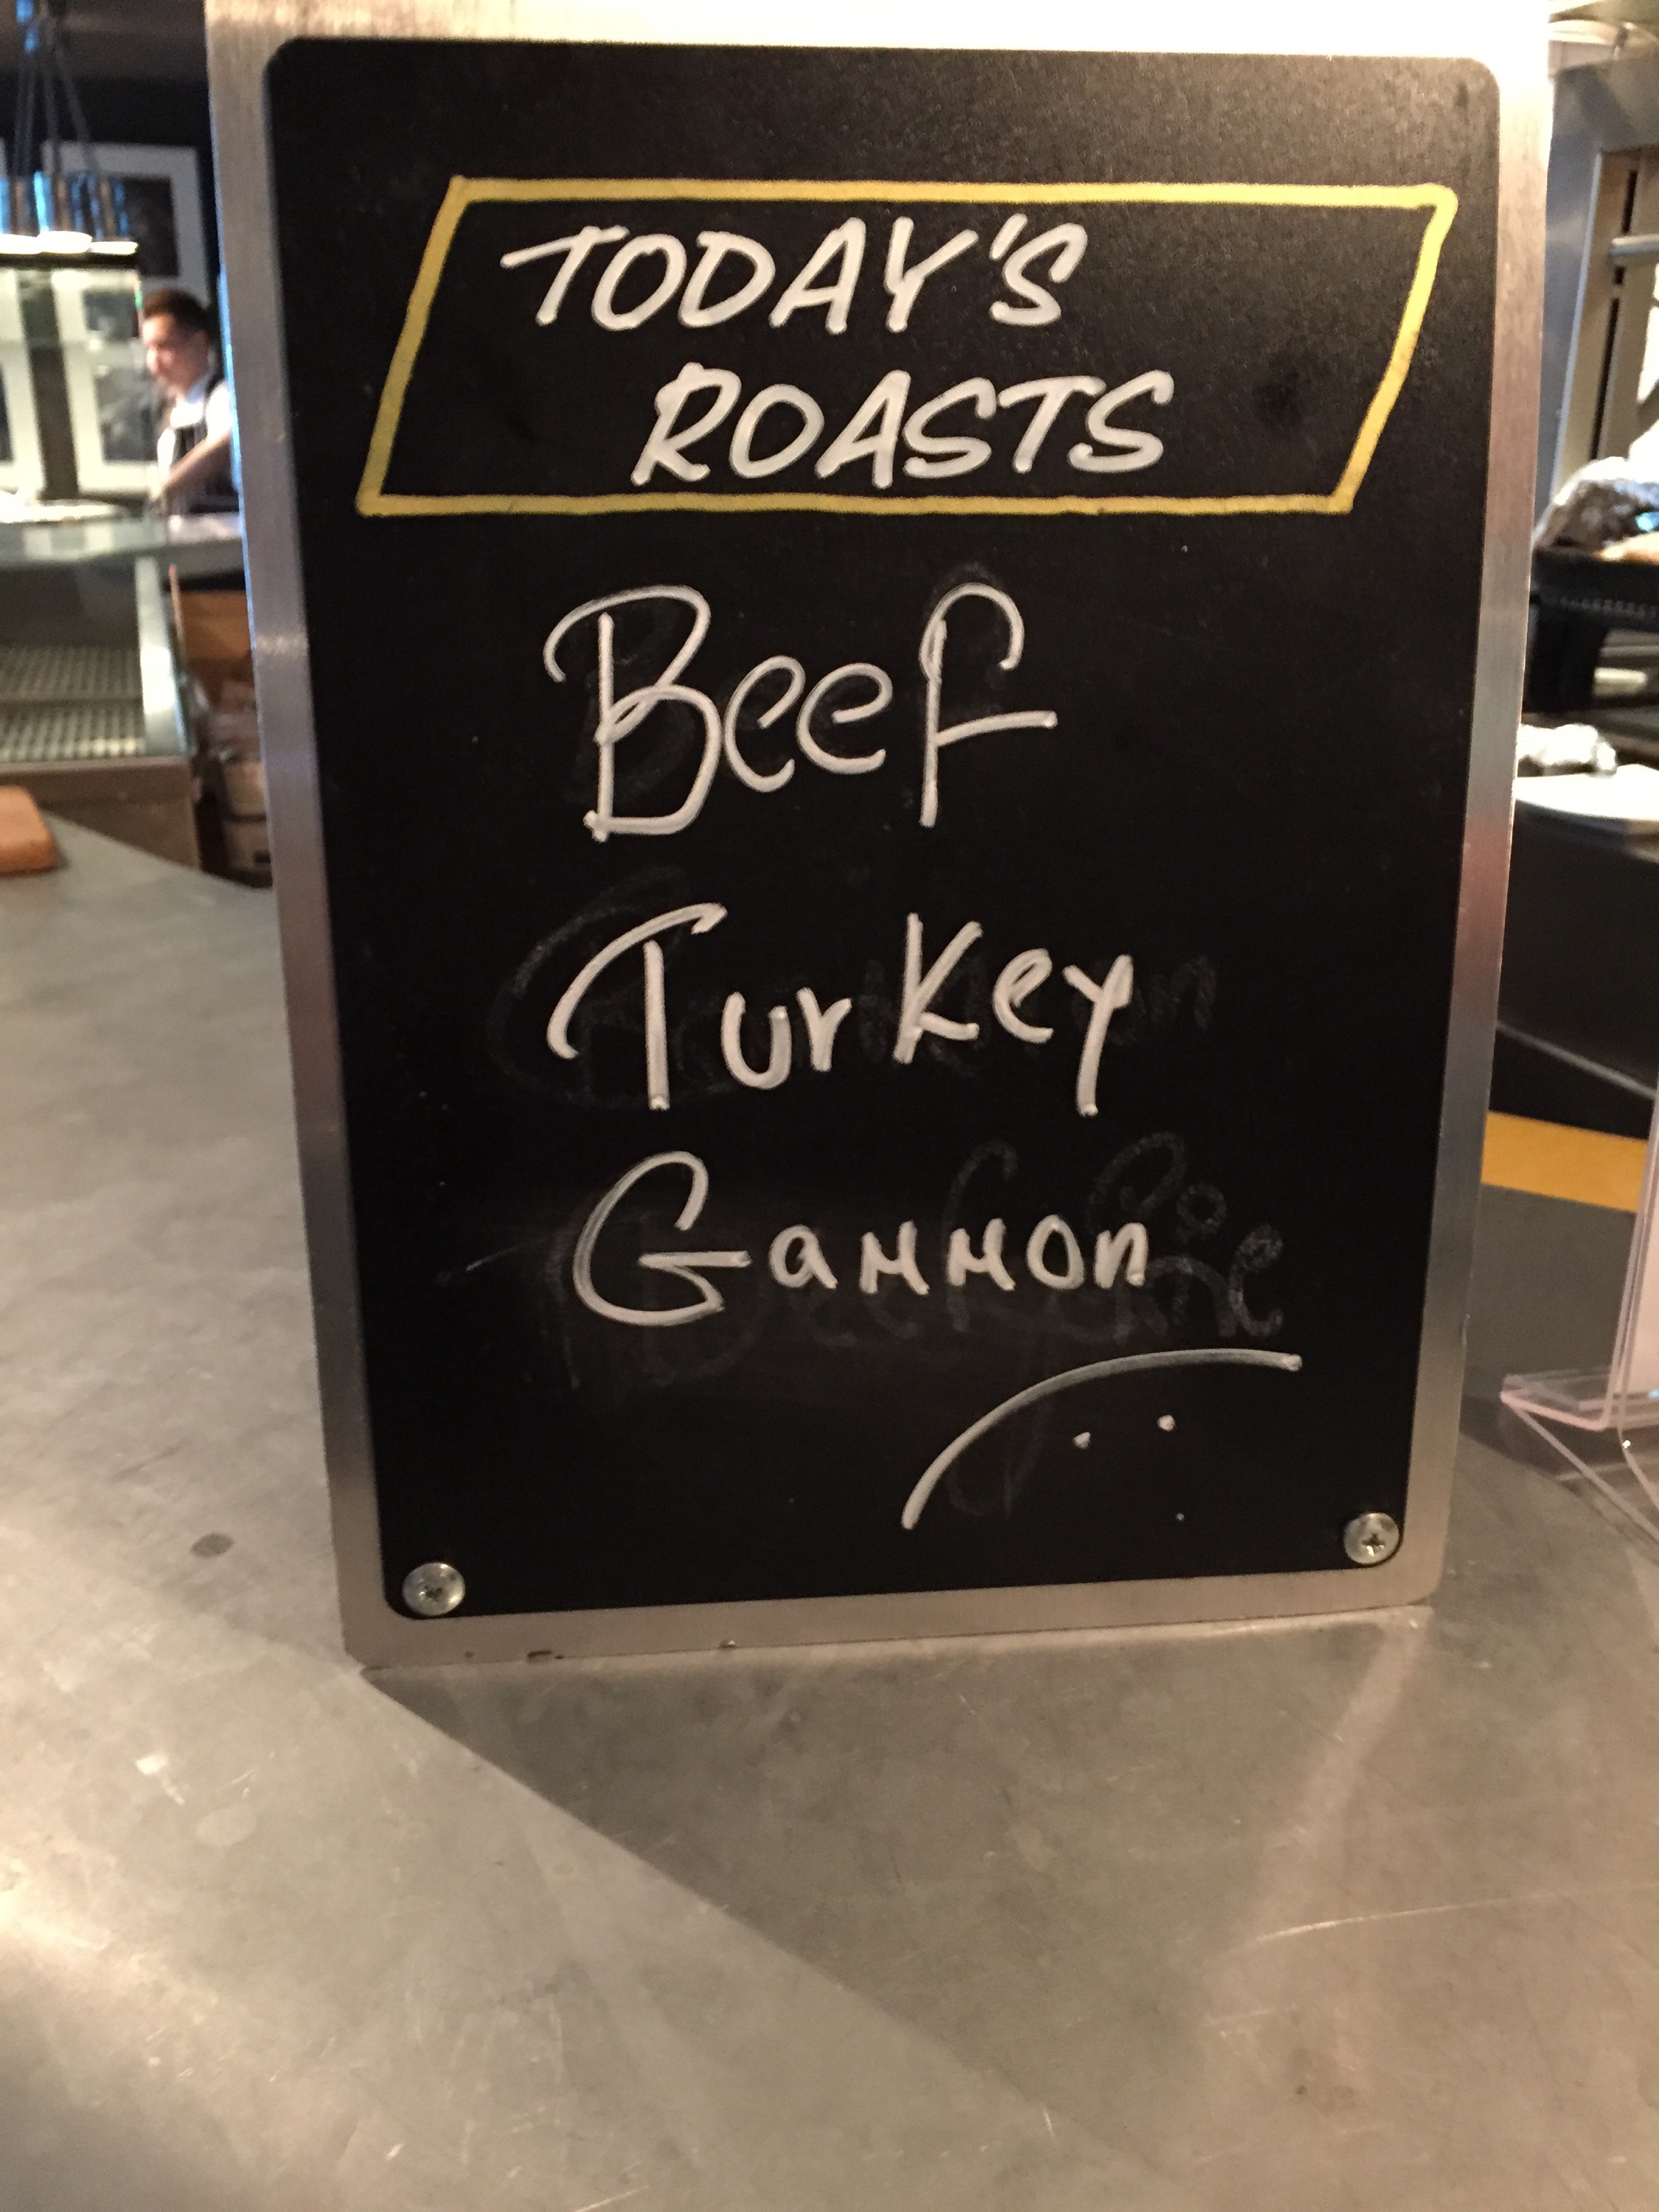 TODAY'S
ROASTS
Beef
Turkey
Gammon